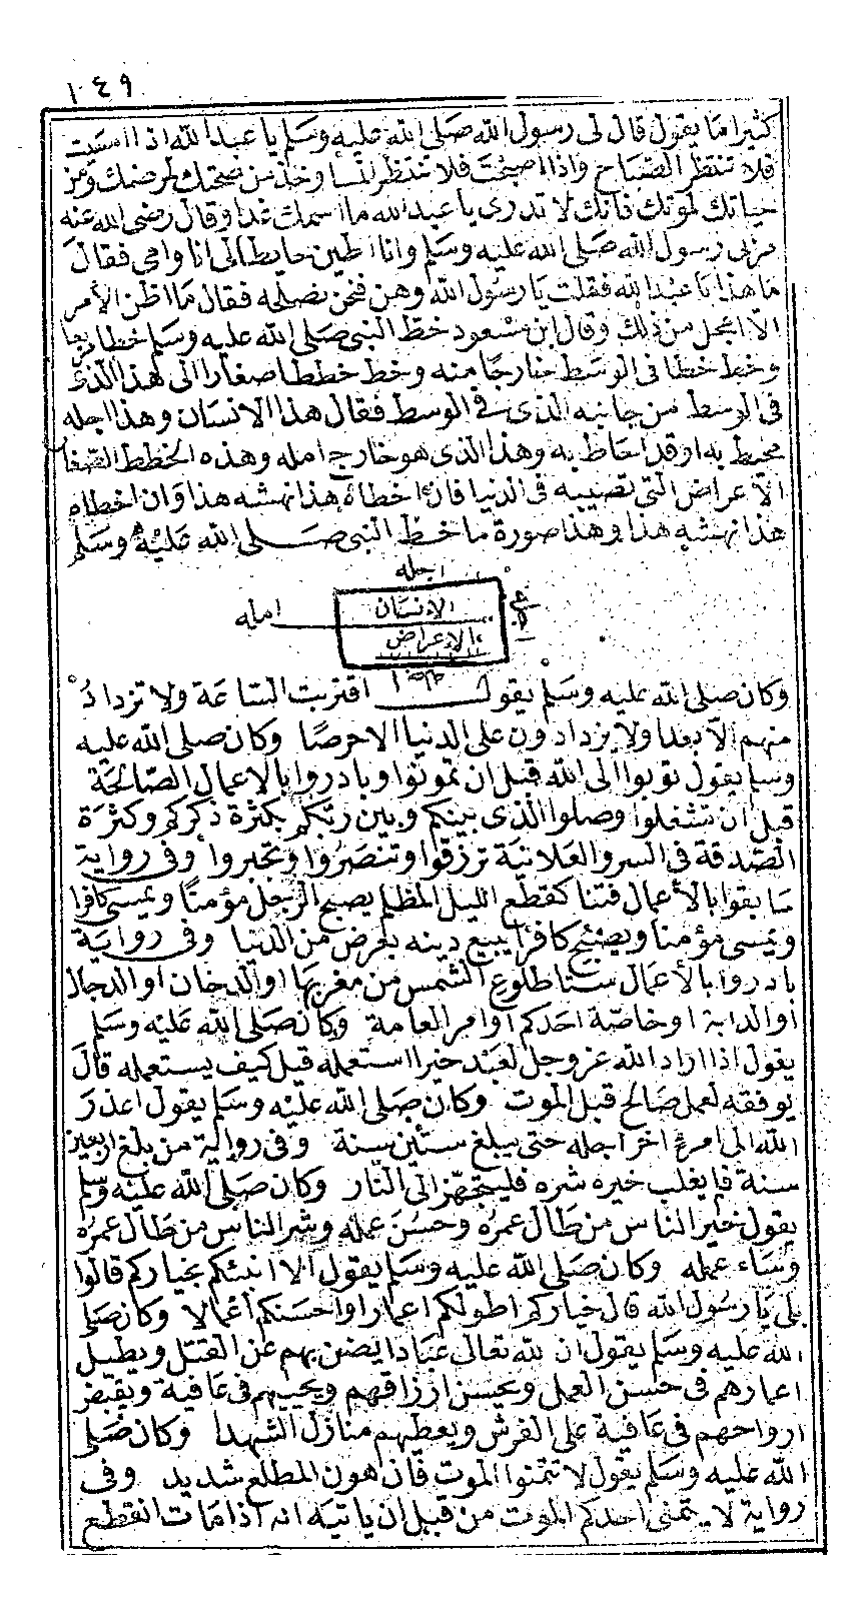 ١٤٩
كثيرا ما يقول قال لى رسول الله صلى الله عليه وسلم يا عبد الله اذا امسيت
فلا تنتظر الصباح واذا اصبحت فلا تنتظر المسا وخذ من صحتك لمرضك ومن
حياتك لموتك فانك لا تدرى يا عبد الله ما اسمك غدا وقال رضى الله عنه
مر بى رسول الله صلى الله عليه وسلم وانا اطين حايطا لى انا وامى فقال
ما هذا يا عبد الله فقلت يا رسول الله وهن فنحن نصلحه فقال ما اظن الأمر
الا اعجل من ذلك وقال ابن مسعود خط النبى صلى الله عليه وسلم خطا مربعا
وخط خطا فى الوسط خارجا منه وخط خططا صغارا الى هذا الذى
فى الوسط من جانبه الذى فى الوسط فقال هذا الانسان وهذا اجله
محيط به او قد احاط به وهذا الذى هو خارج امله وهذه الخطط الصغا
الأعراض التى تصيبه فى الدنيا فان اخطاه هذا نهشه هذا وان اخطاه
هذا نهشه هذا وهذا صورة ما خط النبى صلى الله عليه وسلم
اجله
الانسان
امله
الاعراض
وكان صلى الله عليه وسلم يقول اقتربت الساعة ولا تزداد
منهم الا بعدا ولا يزدادون على الدنيا الا حرصا وكان صلى الله عليه
وسلم يقول توبوا الى الله قبل ان تموتوا وبادروا بالاعمال الصالحة
قبل ان تشغلوا وصلوا الذى بينكم وبين ربكم بكثرة ذكركم وكثرة
الصدقة فى السر والعلانية ترزقوا وتنصروا وتجبروا وفى رواية
سابقوا بالأعمال فتنا كقطع الليل المظلم يصبح الرجل مؤمنا ويمسى كافرا
ويمسى مؤمنا ويصبح كافرا يبيع دينه بعرض من الدنيا وفى رواية
بادروا بالأعمال ستا طلوع الشمس من مغربها او الدخان او الدجال
او الدابة او خاصة احدكم او امر العامة وكان صلى الله عليه وسلم
يقول اذا اراد الله عز وجل لعبد خيرا استعمله قيل كيف يستعمله قال
يوفقه لعمل صالح قبل الموت وكان صلى الله عليه وسلم يقول اعذر
الله الى امرئ اخر اجله حتى يبلغ ستين سنة وفى رواية من بلغ اربعين
سنة فلم يغلب خيره شره فليتجهز الى النار وكان صلى الله عليه وسلم
يقول خير الناس من طال عمره وحسن عمله وشر الناس من طال عمره
وساء عمله وكان صلى الله عليه وسلم يقول الا انبئكم بخياركم قالوا
بلى يا رسول الله قال خياركم اطولكم اعمارا واحسنكم أعمالا وكان صلى
الله عليه وسلم يقول ان لله تعالى عبادا يضن بهم عن القتل ويطيل
اعمارهم فى حسن العمل ويحسن ارزاقهم ويحييهم فى عافية ويقبض
ارواحهم فى عافية على الفرش ويعطيهم منازل الشهدا وكان صلى
الله عليه وسلم يقول لا تتمنوا الموت فان هول المطلع شديد وفى
رواية لا يتمنى احدكم الموت من قبل ان ياتيه انه اذا مات انقطع